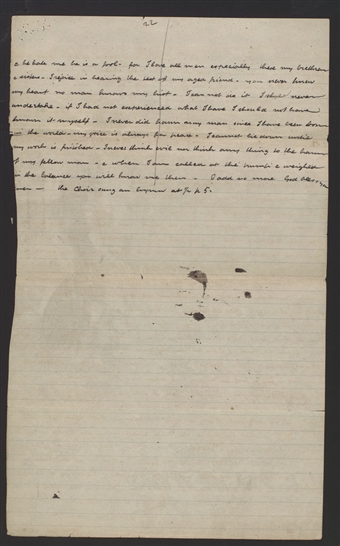 22
& he hate me he is a fool- for I love all men especially these my brethren
& sisters- I rejoice in hearing the test of my aged friend- you never knew
my heart no man knows my hist- I can not do it I shall never
undertake- if I had not experienced what I have I should not have
known it myself- I never did harm any man since I have been born
in the world- my voice is always for peace- I cannot lie down until
my work is finished- I never think evil nor think any thing to the harm
of my fellow man- & when I am called at the trump & weighed
in the balance you will know me then- I add no more God bless you
men- the Choir sung an hymn at ¼ p 5-